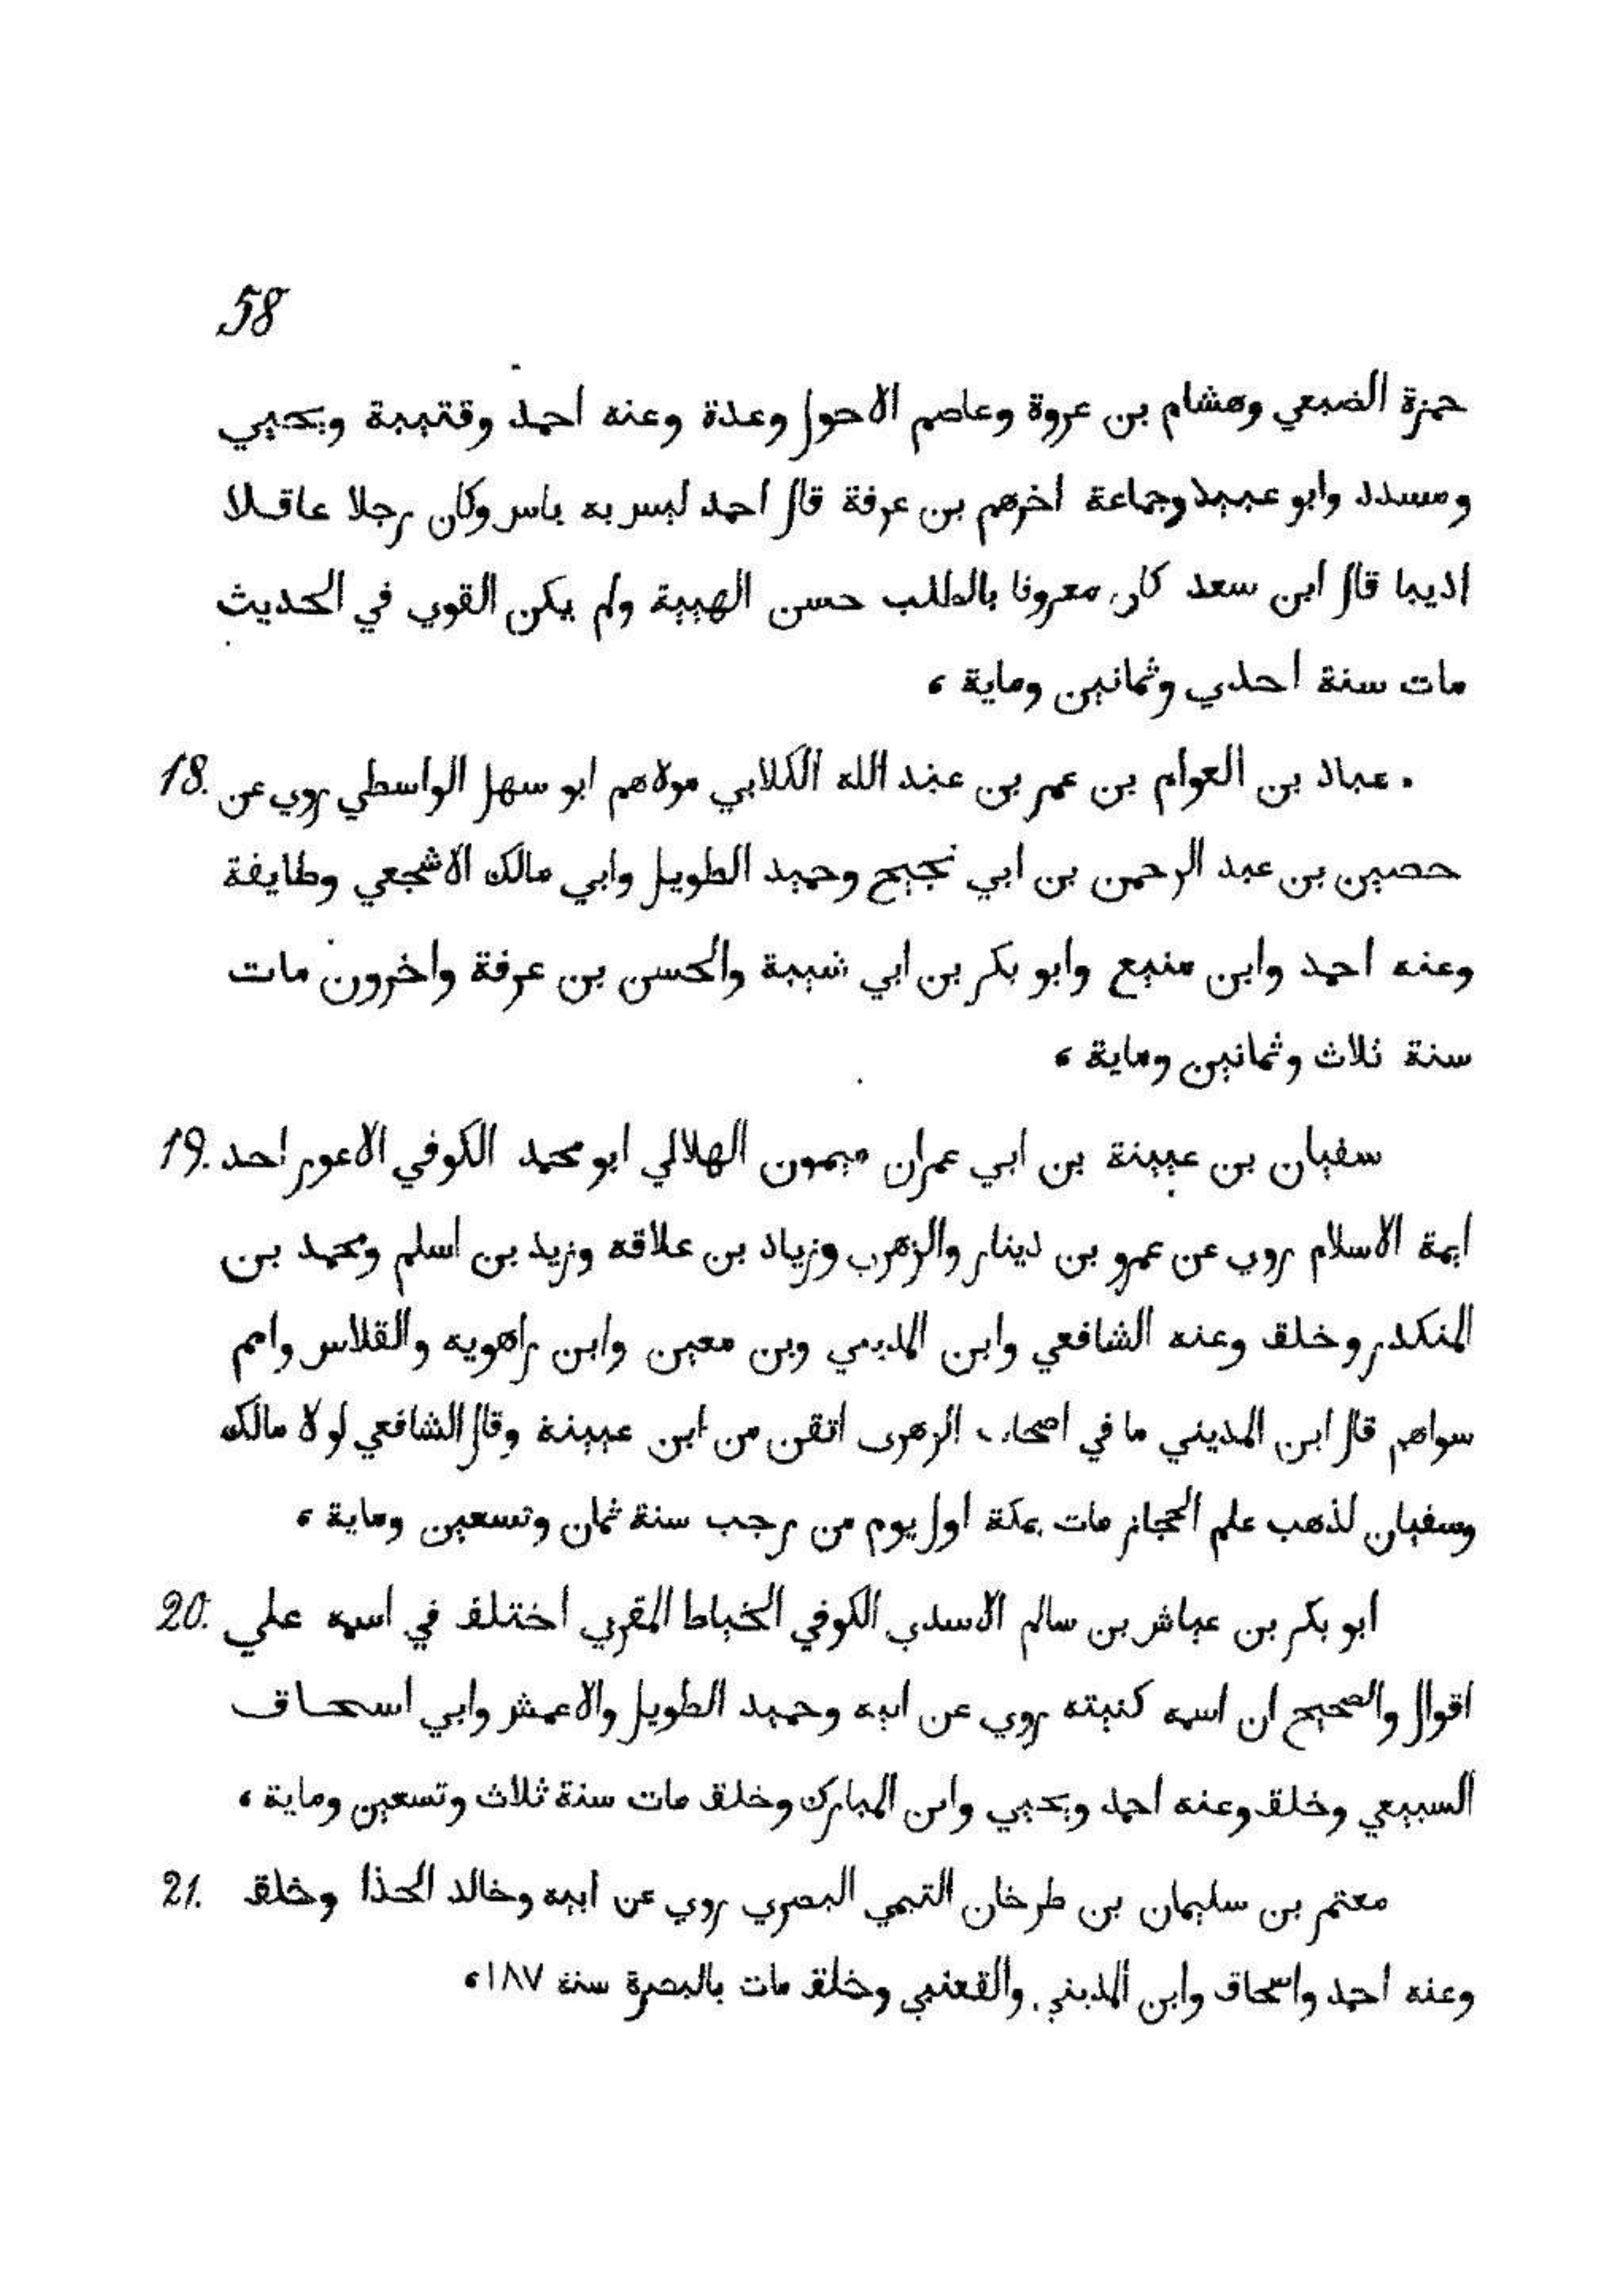 58
حمزة الضبعي وهشام بن عروة وعاصم الاحول وعدة وعنه احمد وقتيبة ويحيي
ومسدد وابو عبيد وجماعة اخرهم بن عرفة قال احمد ليس به باس وكان رجلا عاقلا
اديبا قال ابن سعد كان معروفا بالطلب حسن الهيية ولم يكن القوي في الحديث
مات سنة احدي وثمانين وماية ،
18. عباد بن العوام بن عمر بن عبد الله الكلابي مولاهم ابو سهل الواسطي روي عن
حصين بن عبد الرحمن بن ابي نجيح وحميد الطويل وابي مالك الاشجعي وطايفة
وعنه احمد وابن منيع وابو بكر بن ابي شيبة والحسن بن عرفة واخرون مات
سنة ثلاث وثمانين وماية ،
19. سفيان بن عيينة بن ابي عمران ميمون الهلالي ابو محمد الكوفي الاعور احد
ايمة الاسلام روي عن عمرو بن دينار والزهري وزياد بن علاقه وزيد بن اسلم ومحمد بن
المنكدر وخلق وعنه الشافعي وابن المديني وبن معين وابن راهويه والفلاس وامم
سواهم قال ابن المديني ما في اصحاب الزهرى اتقن من ابن عيينة وقال الشافعي لولا مالك
وسفيان لذهب علم الحجاز مات بمكة اول يوم من رجب سنة ثمان وتسعين وماية ،
20. ابو بكر بن عياش بن سالم الاسدي الكوفي الخياط المقري اختلف في اسمه علي
اقوال والصحيح ان اسمه كنيته روي عن ابيه وحميد الطويل والاعمش وابي اسحاق
السبيعي وخلق وعنه احمد ويحيي وابن المبارك وخلق مات سنة ثلاث وتسعين وماية ،
21. معتمر بن سليمان بن طرخان التيمي البصري روي عن ابيه وخالد الحذا وخلق
وعنه احمد واسحاق وابن المديني والقعنبي وخلق مات بالبصرة سنة ١٨٧ ،